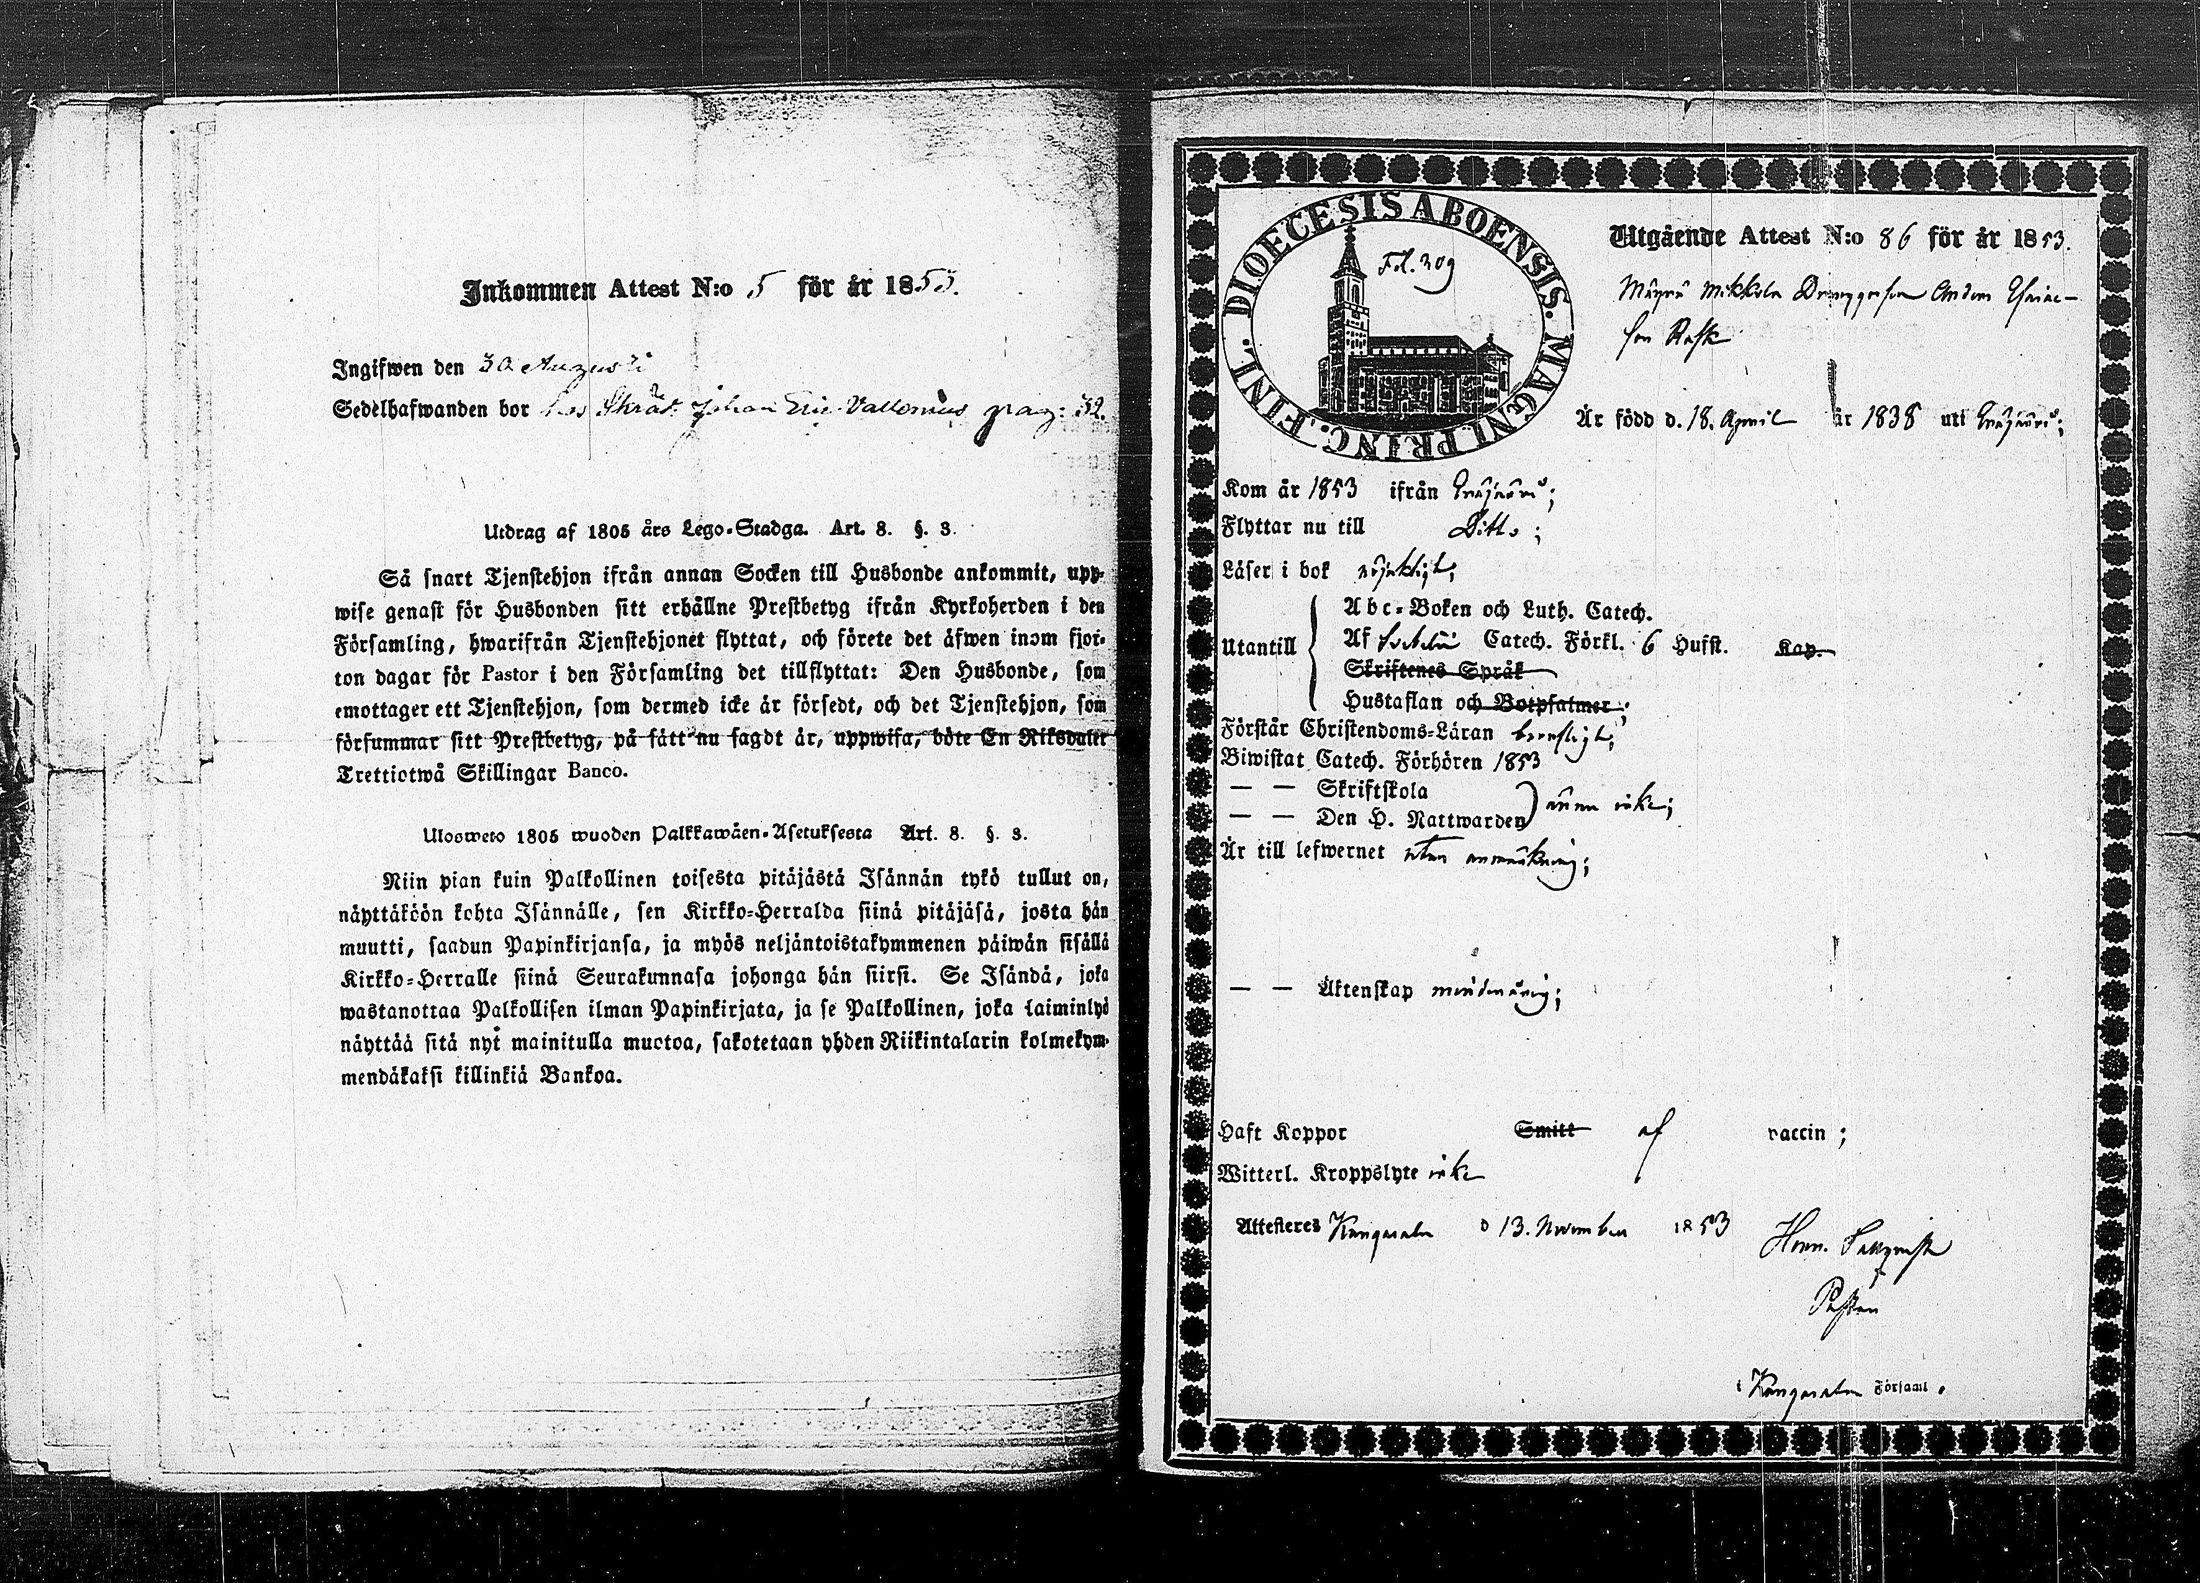 Inkommen Attest N:o 5 för år 1853.
Ingifwen den 30 Augusti
Sedelhafwanden bor hos Skräd. Johan Eric Vallenius pag: 32.
Utdrag af 1805 års Lego-Stadga. Art. 8. §. 3.
Så snart Tjenstehjon ifrån annan Socken till Husbonde ankommit, upp-
wise genast för Husbonden sitt erhållne Prestbetyg ifrån Kyrkoherden i den
Församling, hwarifrån Tjenstehjonet flyttat, och förete det äfwen inom fjor-
ton dagar för Pastor i den Församling det tillflyttat: Den Husbonde, som
emottager ett Tjenstehjon, som dermed icke är försedt, och det Tjenstehjon, som
försummar sitt Prestbetyg, på sätt nu sagdt är, uppwisa, böte En Riksdaler
Trettiotwå Skillingar Banco.
Ulosweto 1805 wuoden Palkkawäen-Asetuksesta Art. 8. §. 3.
Niin pian kuin Palkollinen toisesta pitäjästä Isännän tykö tullut on,
näyttäköön kohta Isännälle, sen Kirkko-Herralda siinä pitäjäsä, josta hän
muutti, saadun Papinkirjansa, ja myös neljäntoistakymmenen päiwän sisällä
Kirkko-Herralle siinä Seurakunnasa johonga hän siirsi. Se Isändä, joka
wastanottaa Palkollisen ilman Papinkirjata, ja se Palkollinen, joka laiminlyö
näyttää sitä nyt mainitulla muotoa, sakotetaan yhden Riikintalarin kolmekym-
mendäkaksi killinkiä Bankoa.
DIOECESIS ABOENSIS. MAGNI. PRINC. FINL.
Fol. 309
Utgående Attest N:o 86 för år 1853.
Mikkola Drenggossen Anders
son Rask
Är född d. 18. April år 1838 uti
Kom år 1853 ifrån
Flyttar nu till Ditto;
Läser i bok nöjaktigt;
Utantill
Abc-Boken och Luth. Catech.
Af Catech. Förkl. 6 Hufst. Kap.
Skriftenes Språk
Hustaflan och Botpsalmer;
Förstår Christendoms-Läran
Biwistat Catech. Förhören 1853
— — Skriftskola
— — Den H. Nattwarden ännu icke;
Är till lefwernet utan anmärkning;
— — Äktenskap minderårig;
Haft Koppor Smitt af vaccin;
Witterl. Kroppslyte icke
Attesteres Kangasala d 13. November 1853
Pastor
i Kangasala Församl.